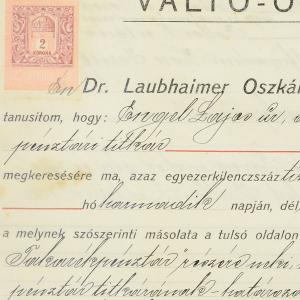 VÁLTÓ-Ó
2
KORONA
Én Dr. Laubhaimer Oszká
tanusítom, hogy: Engel Lajos úr, a
pénztári titkár
megkeresésére ma, azaz egyezerkilenczszáz ti
hó harmadik napján, dél
a melynek szószerinti másolata a tulsó oldalon
Takarékpénztár" részére neki,
pénztár titkárának - határozo